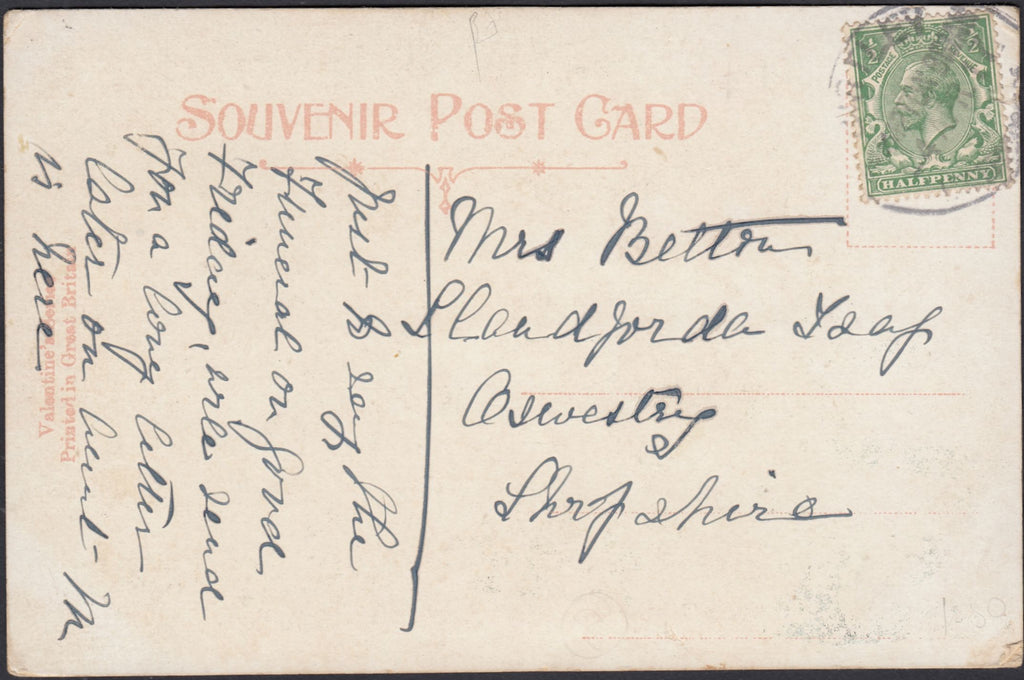 SOUVENIR POST CARD
½ ½
POSTAGE REVENUE
HALFPENNY
Just to say the
Funeral on Good
Friday, will send
You a long letter
later on Aunt M
is here
Mrs Betton
Llandforda Isaf
Oswestry
Shropshire
Valentine's Series
Printed in Great Britain